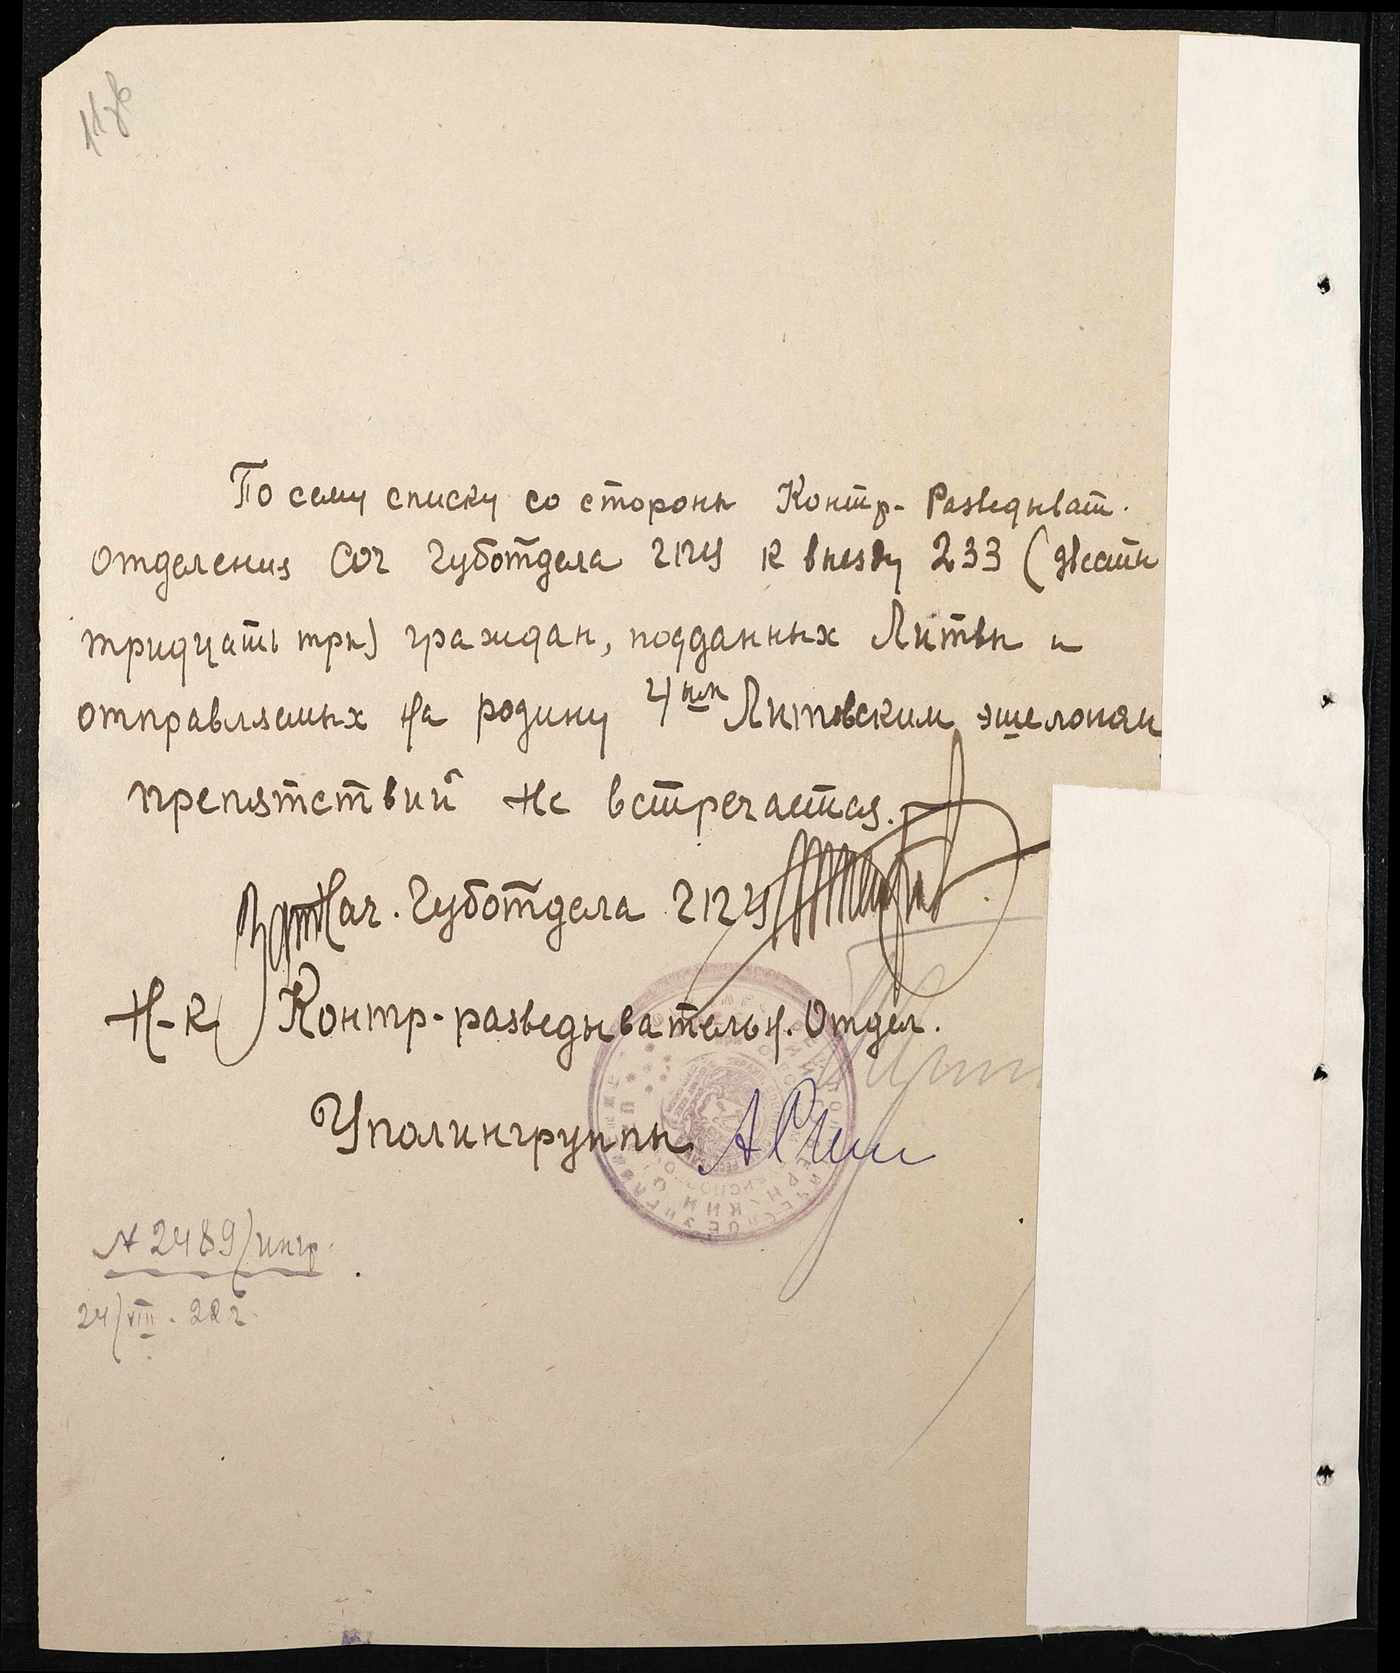 По сему списку со стороны Контр-Разведыват.
Отделения СОЧ Губотдела ГПУ к въезду 233 (двести
тридцать три) граждан, подданных Литвы и
отправляемых на родину 4ым Литовским эшелоном
препятствий не встречается.
Нач. Губотдела ГПУ
Н-к Контр-разведывательн. Отдел.
Уполингруппы
№ 2489/ингр.
24/VIII. 22 г.